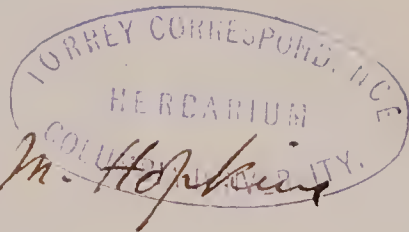 TORREY CORRESPONDENCE
HERBARIUM
COLUMBIA UNIVERSITY.
M. Hopkins